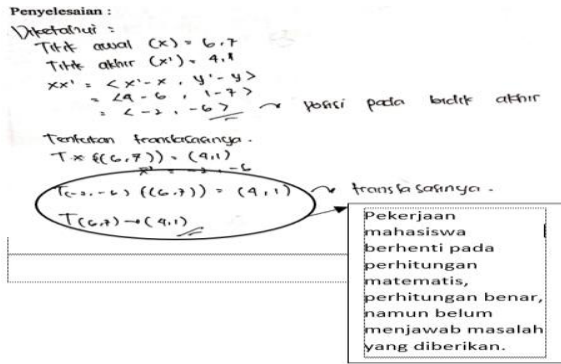 Penyelesaian :
Diketahui :
Titik awal (x) = 6,7
Titik akhir (x') = 4,1
xx' = <x'-x , y'-y>
= <4 - 6 , 1 - 7>
= <-2 , -6> → posisi pada titik akhir
Tentukan translasinya.
T ((6,7)) = (4,1)
T(-2,-6) ((6,7)) = (4,1) → translasinya.
T(6,7) → (4,1)
Pekerjaan
mahasiswa
berhenti pada
perhitungan
matematis,
perhitungan benar,
namun belum
menjawab masalah
yang diberikan.